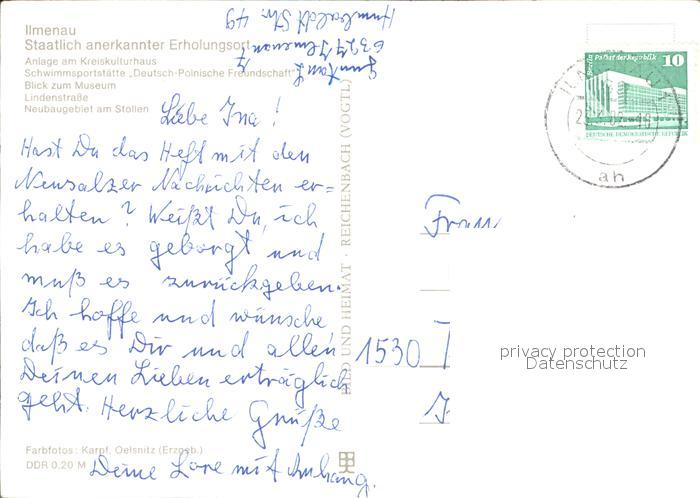 Ilmenau
Staatlich anerkannter Erholungsort
Anlage am Kreiskulturhaus
Schwimmsportstätte „Deutsch-Polnische Freundschaft“
Blick zum Museum
Lindenstraße
Neubaugebiet am Stollen
6327 Ilmenau 7
Humboldt Str. 49
Liebe Ina!
Hast Du das Heft mit den
Neusalzer Nachrichten er=
halten? Weißt Du, ich
habe es geborgt und
muß es zurückgeben.
Ich hoffe und wünsche
daß es Dir und allen
Deinen Lieben erträglich
geht. Herzliche Grüße
Deine Lore mit Anhang.
Farbfotos: Karpf, Oelsnitz (Erzgeb.)
DDR 0.20 M
BILD UND HEIMAT · REICHENBACH (VOGTL)
Palast der Republik
10
DEUTSCHE DEMOKRATISCHE REPUBLIK
ah
Frau
1530
privacy protection
Datenschutz